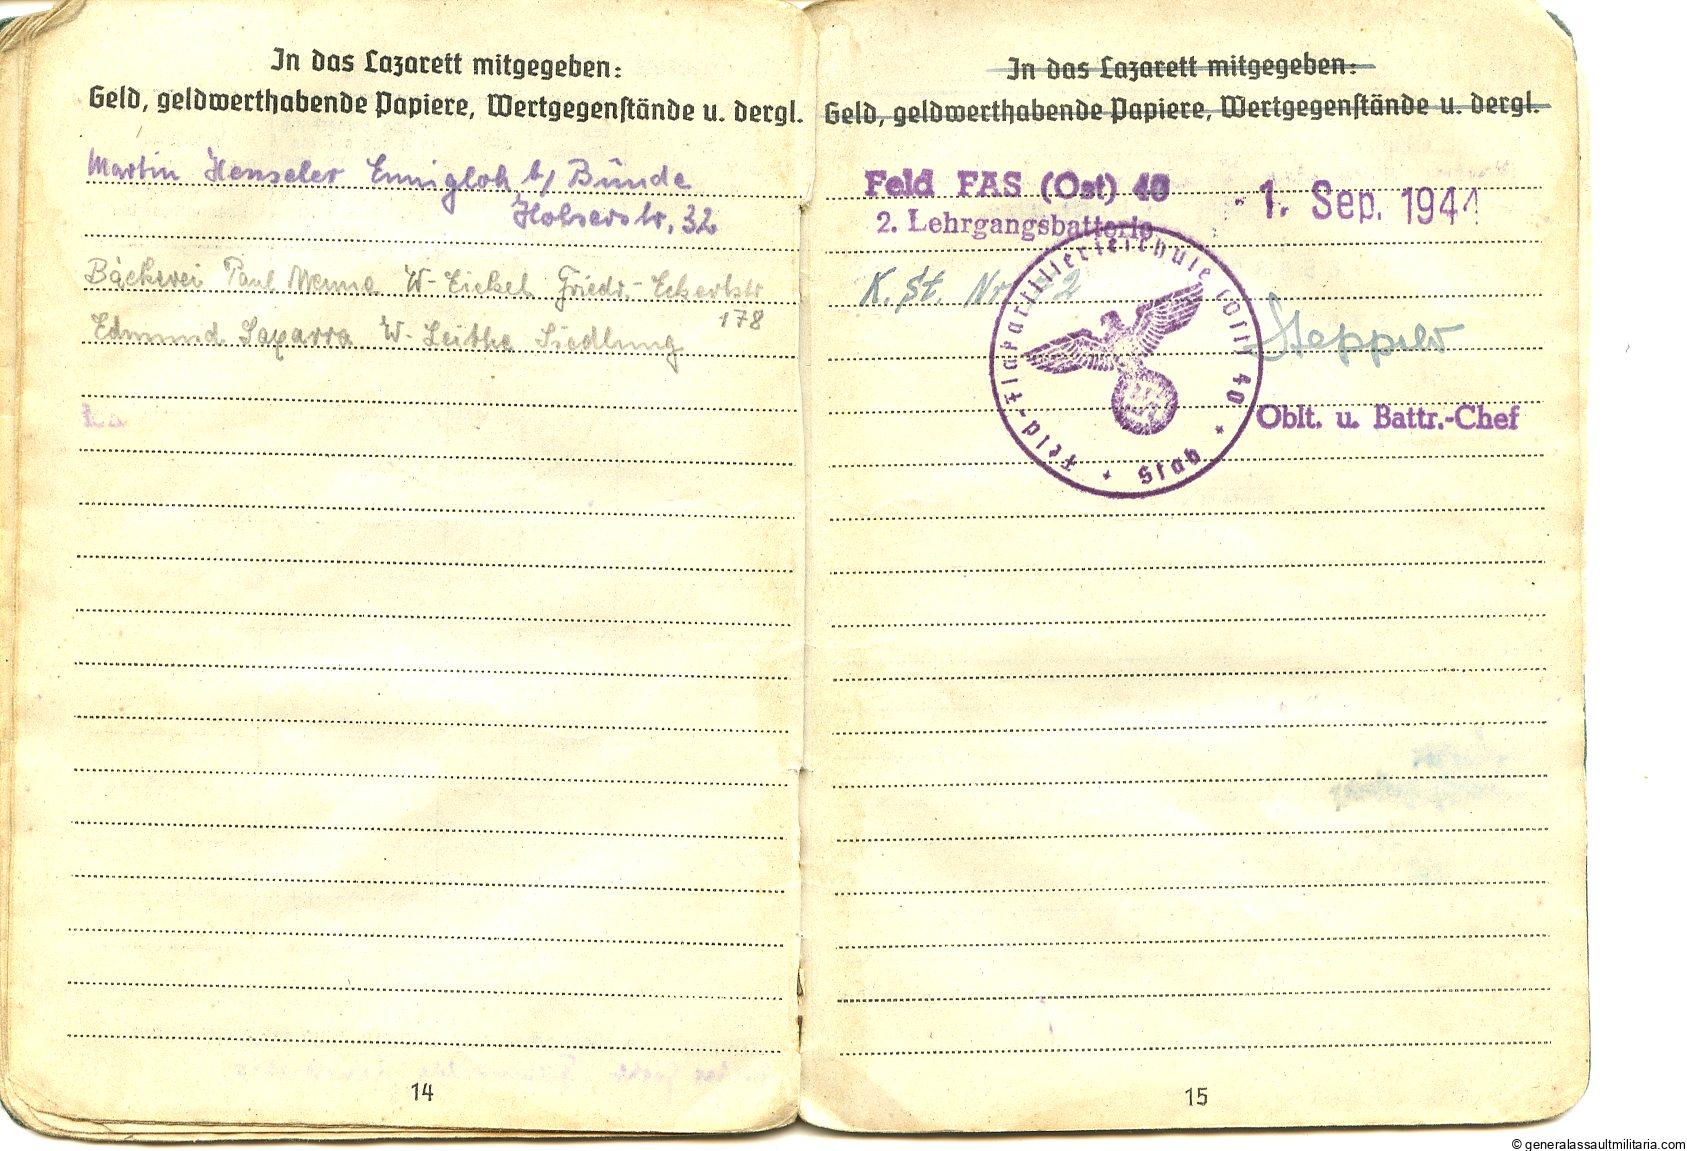 In das Lazarett mitgegeben:
Geld, geldwerthabende Papiere, Wertgegenstände u. dergl.
Martin Henseler Ennigloh b/ Bünde
Holserstr. 32
Bäckerei Paul Menna W-Eickel Friedr.-Eckertstr
178
Edmund W-Leithe Siedlung
14
In das Lazarett mitgegeben:
Geld, geldwerthabende Papiere, Wertgegenstände u. dergl.
Feld FAS (Ost) 40
- 1. Sep. 1944
2. Lehrgangsbatterie
K. St. Nr 2
Feld-Flakartillerieschule (Ost) 40
* Stab *
Oblt. u. Battr.-Chef
15
© generalassaultmilitaria.com